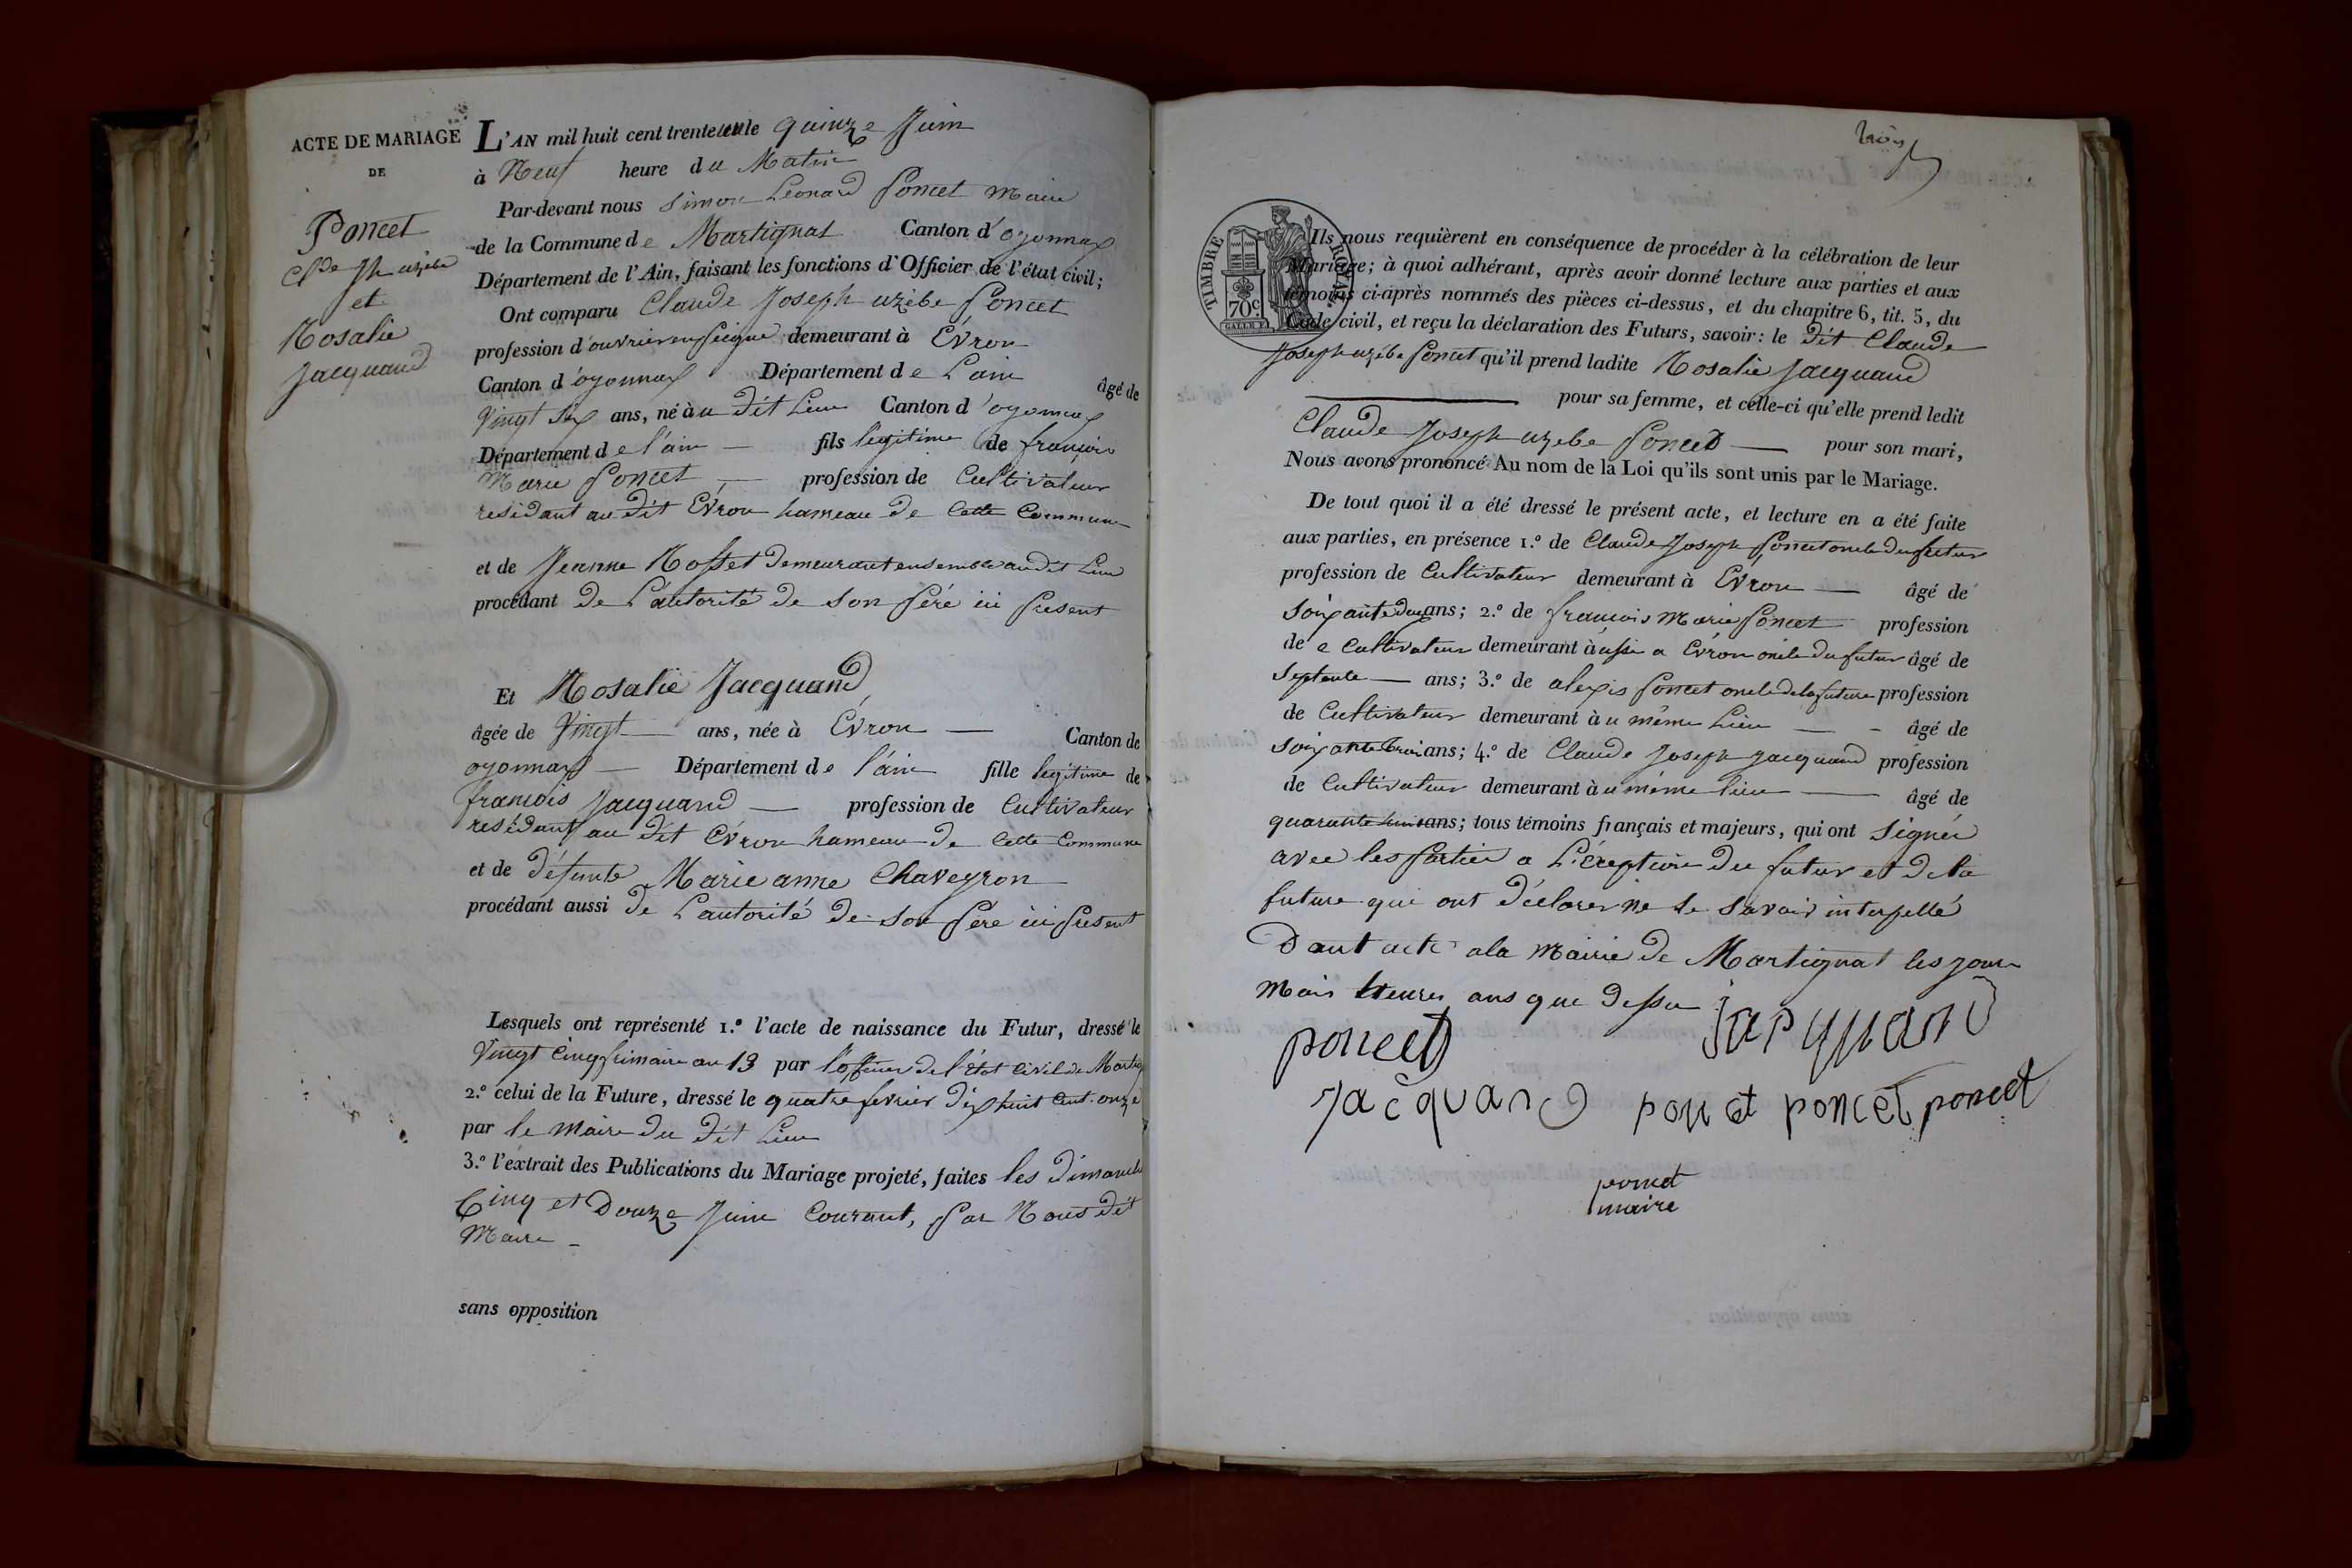 ACTE DE MARIAGE
DE
Poncet
Cl.de Jh uzèbe
et
Rosalie
Jacquand
L'AN mil huit cent trente un le quinze Juin
à Neuf heure du Matin
Par-devant nous Simon Léonard Poncet Maire
de la Commune de Martignat Canton d'oyonnax
Département de l'Ain, faisant les fonctions d'Officier de l'état civil;
Ont comparu Claude Joseph uzèbe Poncet
profession d'ouvrier en peigne demeurant à Évron
Canton d'oyonnax Département de L'ain âgé de
Vingt Six ans, né àu dit Lieu Canton d'oyonnax
Département de l'ain — fils legitime de françois
Marie Poncet — profession de Cultivateur
residant au dit Évron hameau de Cette Commune
et de Jeanne Rosset demeurant ensemble audit Lieu
procédant de L'autorité de son Père ici Present
Et Rosalie Jacquand
âgée de Vingt — ans, née à Évron — Canton de
oyonnax — Département de l'ain fille legitime de
françois Jacquand — profession de Cultivateur
résidant au dit Évron hameau de Cette Commune
et de défunte Marie anne Chaveyron
procédant aussi de L'autorité de son Père ici Present
Lesquels ont représenté 1.º l'acte de naissance du Futur, dressé le
Vingt Cinq frimaire an 13 par l'officier de l'état civil de Martig
2.º celui de la Future, dressé le quatre fevrier dix huit Cent onze
par le Maire du dit Lieu
3.º l'extrait des Publications du Mariage projeté, faites les dimanche
Cinq et Douze Juin Courant, Par Nous dit
Maire -
sans opposition
trois
TIMBRE ROYAL
70c
Ils nous requièrent en conséquence de procéder à la célébration de leur
Mariage; à quoi adhérant, après avoir donné lecture aux parties et aux
témoins ci-après nommés des pièces ci-dessus, et du chapitre 6, tit. 5, du
Code civil, et reçu la déclaration des Futurs, savoir: le dit Claude
Joseph uzèbe Poncet qu'il prend ladite Rosalie Jacquand
— pour sa femme, et celle-ci qu'elle prend ledit
Claude Joseph uzebe Poncet — pour son mari,
Nous avons prononcé Au nom de la Loi qu'ils sont unis par le Mariage.
De tout quoi il a été dressé le présent acte, et lecture en a été faite
aux parties, en présence 1.º de Claude Joseph Poncet oncle du futur
profession de Cultivateur demeurant à Evron — âgé de
soixante deux ans; 2.º de françois Marie Poncet profession
de e Cultivateur demeurant à aussi a Évron oncle du futur âgé de
Septente — ans; 3.º de alexis Poncet oncle de la future profession
de Cultivateur demeurant àu même Lieu — - âgé de
soixante trois ans; 4.º de Claude Joseph Jacquand profession
de Cultivateur demeurant àu même lieu — âgé de
quarante huit ans; tous témoins français et majeurs, qui ont signés
avec les Parties a L'éxeption du futur et de la
future qui ont déclarer ne le savoir interpellé
Dont acte a la Mairie de Martignat les jour
Mois heures ans que dessu
poncet Jacquand
Jacquand poncet poncet poncet
poncet
maire